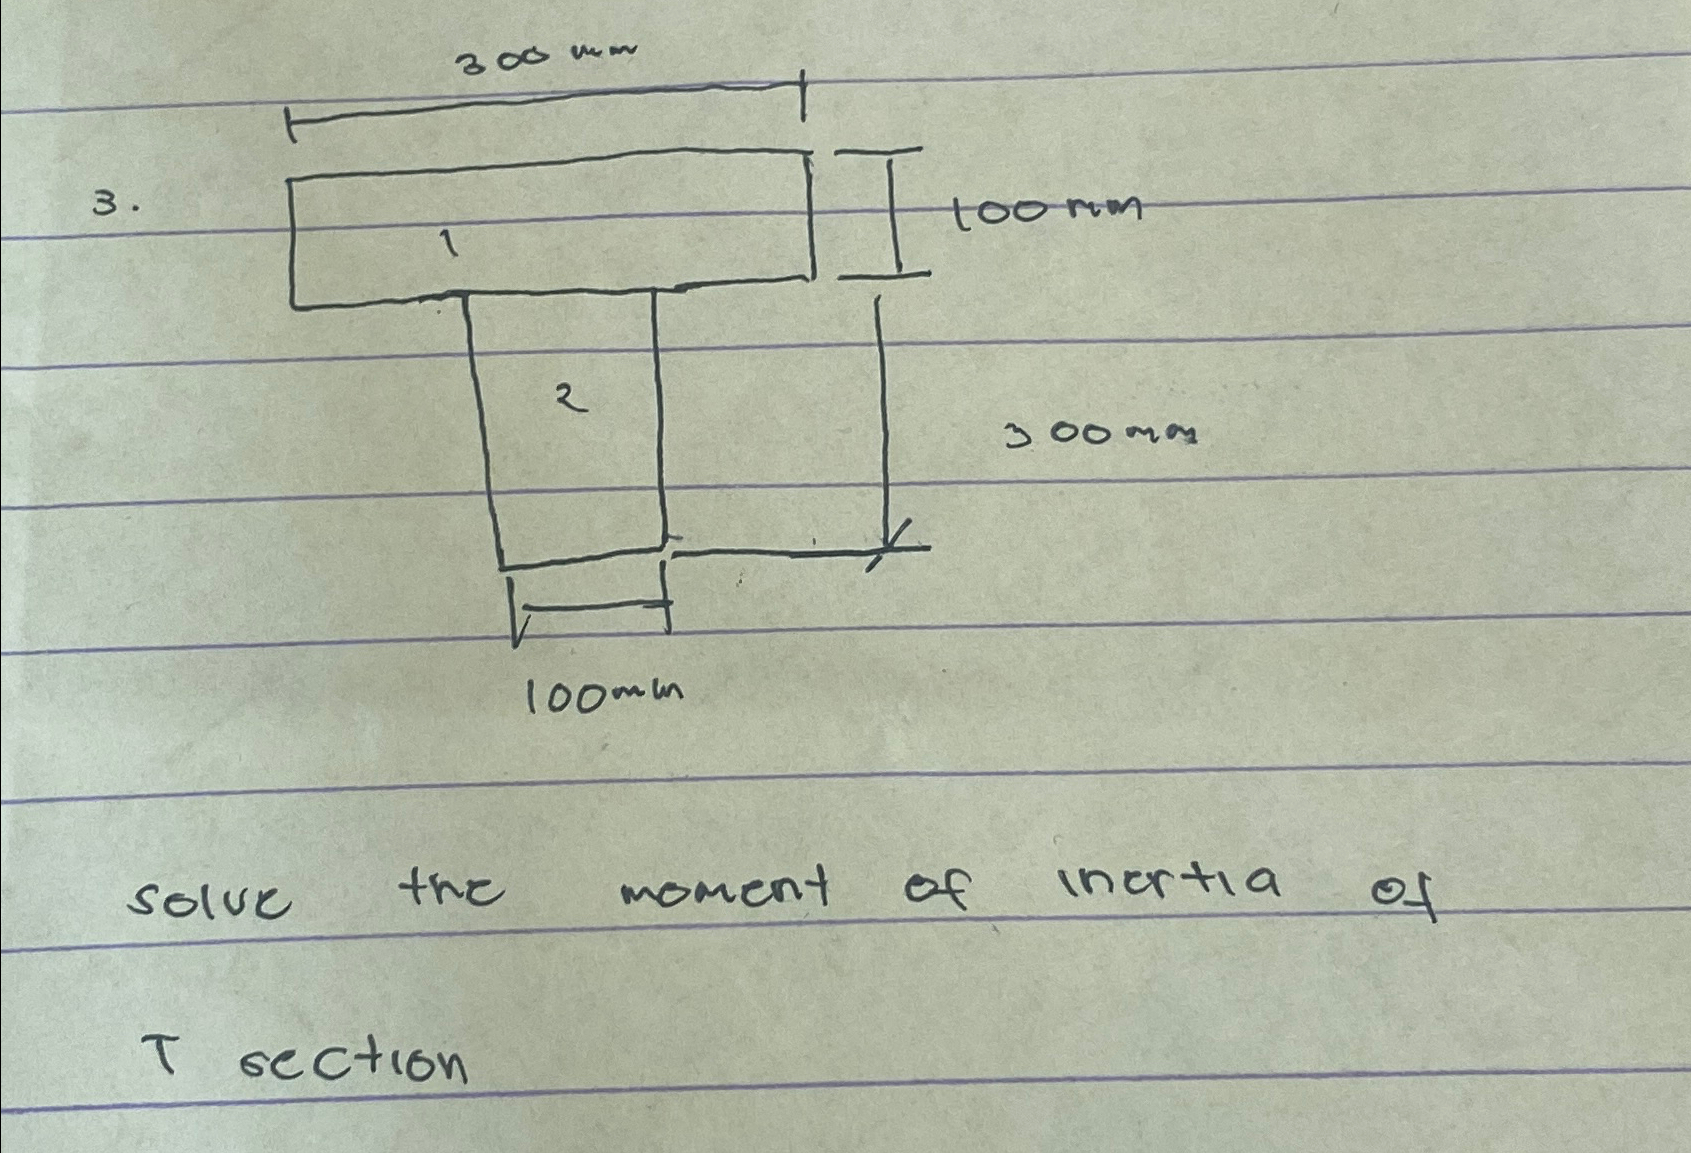 300 mm
3.
100 mm
1
2
300 mm
100mm
solve the moment of inertia of
T section